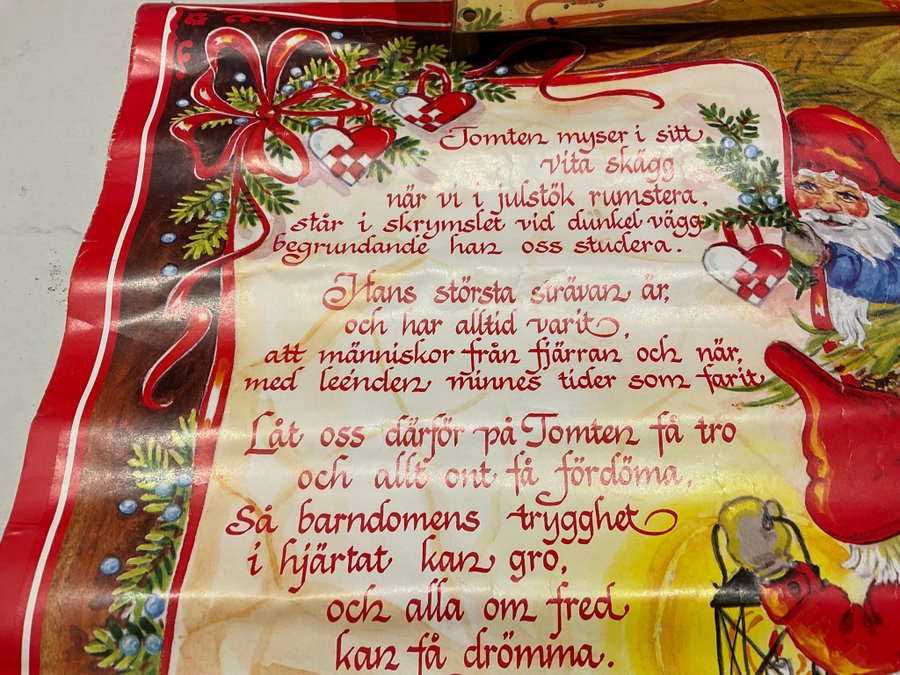 Tomten myser i sitt
vita skägg
när vi i julstök rumstera,
står i skrymslet vid dunkel vägg
begrundande han oss studera.
Hans största strävan är,
och har alltid varit,
att människor från fjärran och när,
med leénden minnes tider som farit
Låt oss därför på Tomten få tro
och allt ont få fördöma,
Så barndomens trygghet
i hjärtat kan gro,
och alla om fred
kan få drömma.